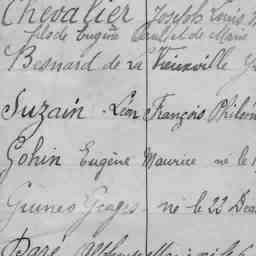 Chevalier Joseph Louis
fils de Eugène et de Marie
Besnard de la Vieuxville
Suzain Léon François Philém
Gohin Eugène Maurice né le
Georges né le 22 Dec
Paré